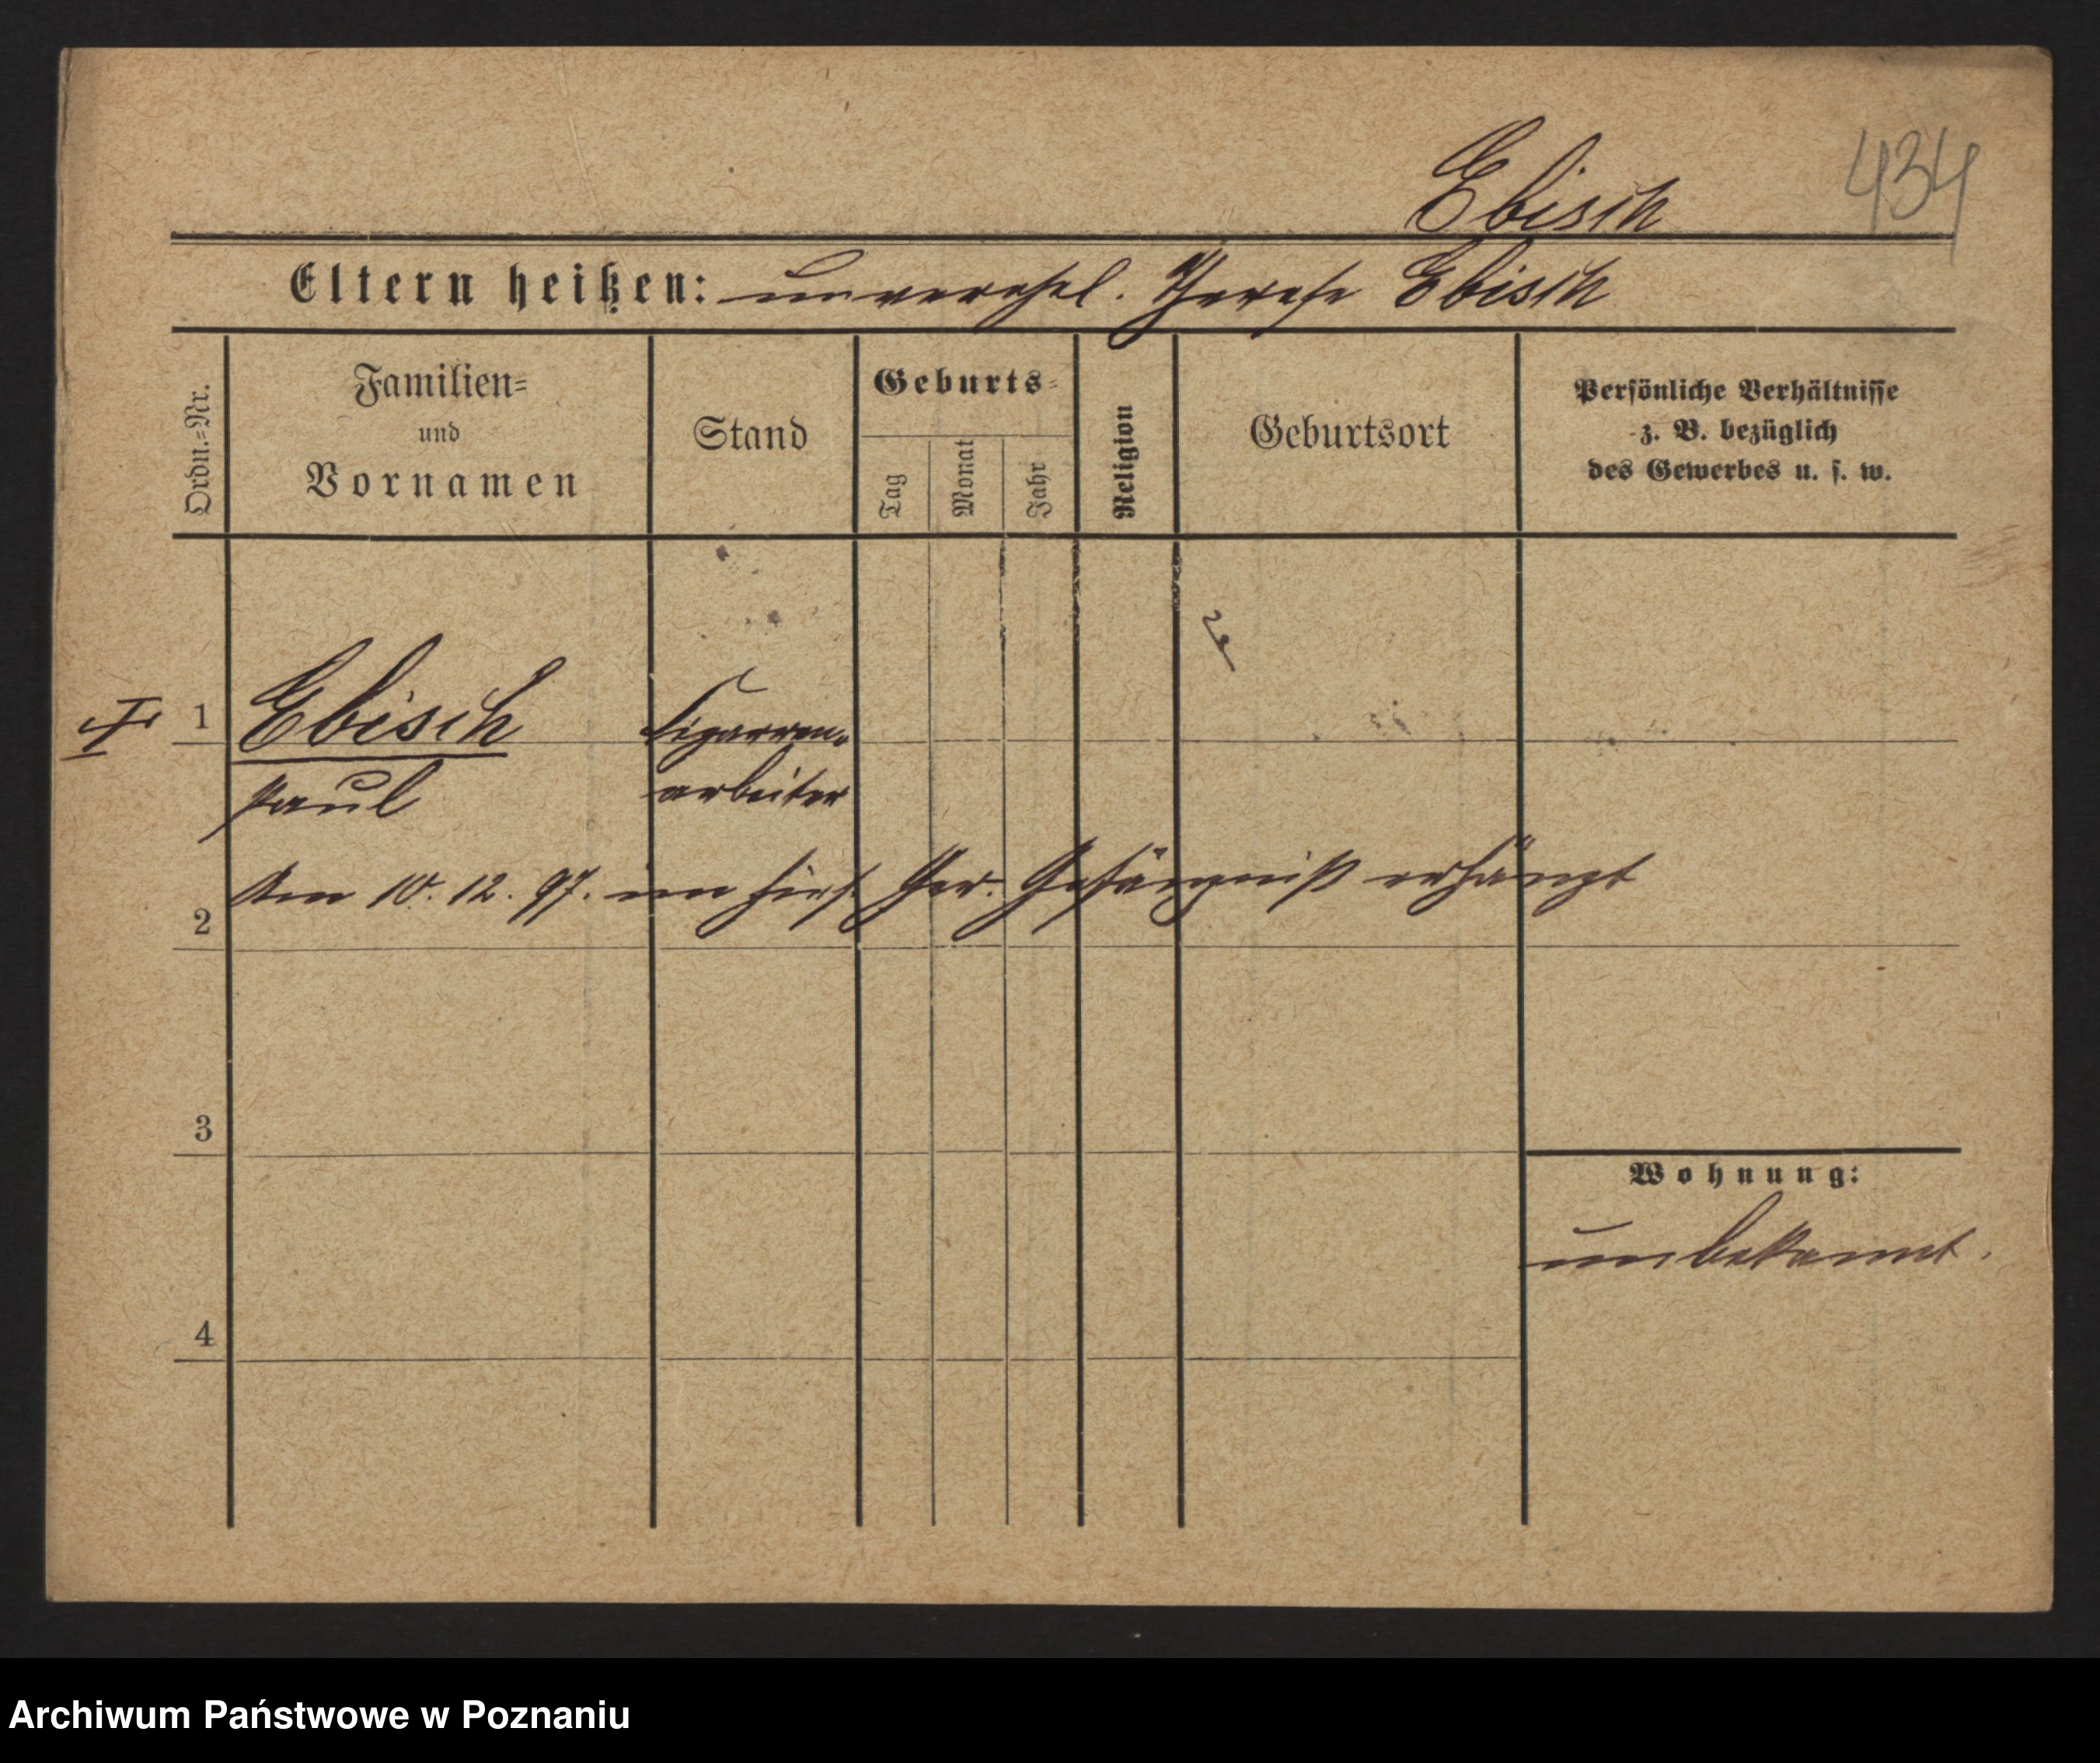 434
Ebisch
Eltern heißen: unverehel. Therese Ebisch
Ordn.=Nr.
Familien=
und
Vornamen
Stand
Geburts=
Tag
Monat
Jahr
Religion
Geburtsort
Persönliche Verhältnisse
z. B. bezüglich
des Gewerbes u. s. w.
1 Ebisch Cigarren-
Paul arbeiter
Am 10. 12. 97. im hies. Ger. Gefängniß erhängt
2
3
Wohnung:
unbekannt.
4
Archiwum Państwowe w Poznaniu